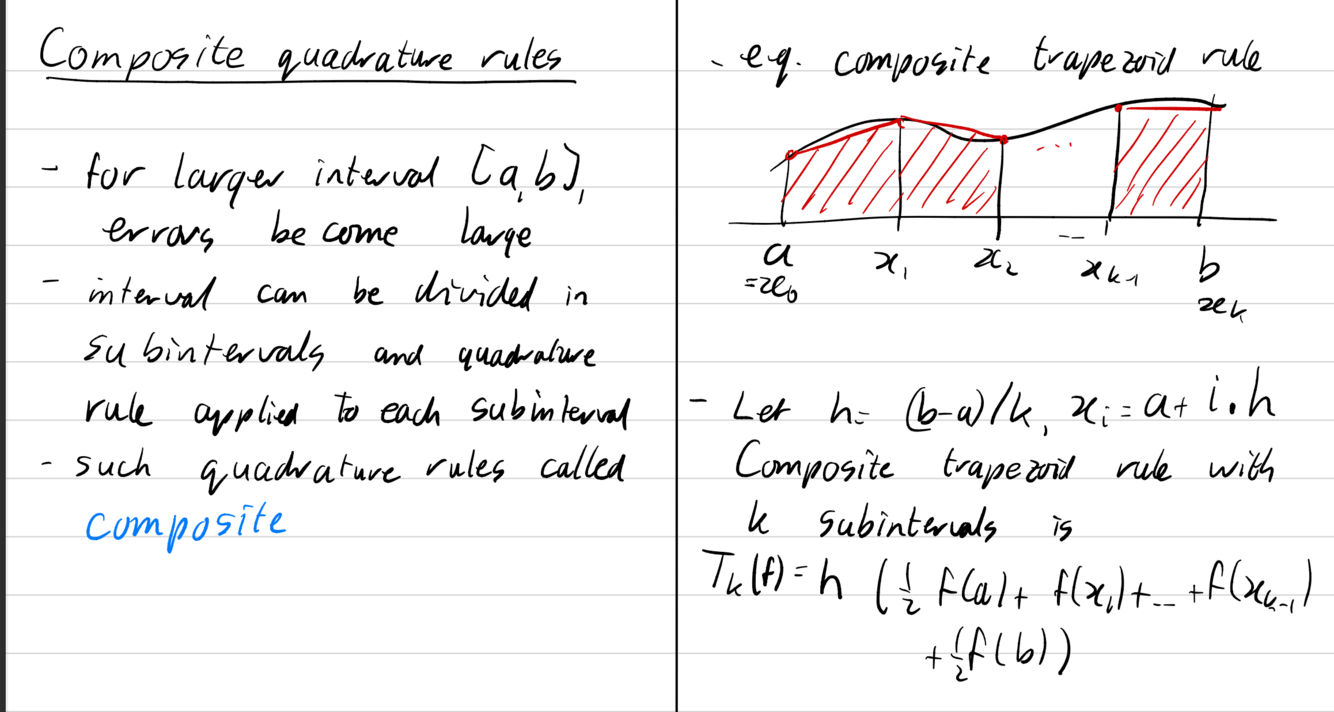 Composite quadrature rules
- for larger interval [a,b],
errors become large
- interval can be divided in
subintervals and quadrature
rule applied to each subinterval
- such quadrature rules called
composite
- e.g. composite trapezoid rule
...
a x₁ x₂ -- xₖ₋₁ b
=x₀ xₖ
- Let h= (b-a)/k, xᵢ = a+ i·h
Composite trapezoid rule with
k subintervals is
Tₖ(f) = h (½ f(a) + f(x₁) + ... + f(xₖ₋₁)
+ ½ f(b))